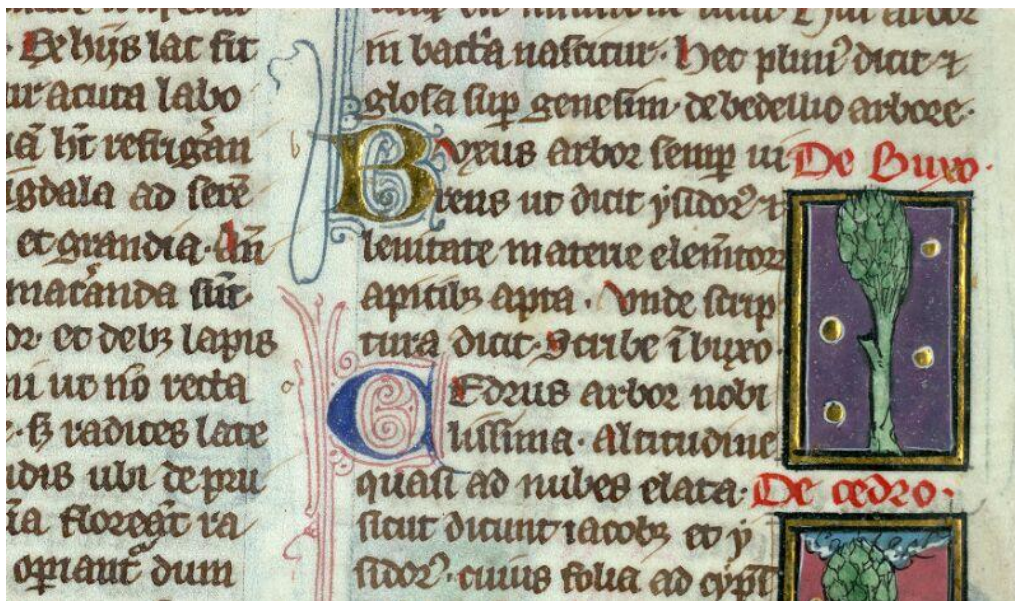 . Ex hijs lac fit
ur acuta labo
hñt refrigān
igdala ad serē
et grandia.
matānda sūt
or. et debꝫ lapis
ni ut nō recta
radices late
udis ubi de pru
floreāt ra
opiant̄ dum
in bacc̄a nascitur. Hec pliniꝰ dicit ⁊
glosa sup̄ genesim. de bedellio arbore.
BVxus arbor semp̄ ui
De Buxo.
rens ut dicit ysidorꝰ ⁊
lenitate materie elem̄torꝝ
apicibꝫ apta. Vnde scrip
tura dicit. Scribe ī buxo.
CEdrus arbor nobi
lissima. Altitudine
quasi ad nubes elata.
De cedro.
sicut dicunt iacobꝫ et y
sidorꝰ. cuius folia ad cyp̄